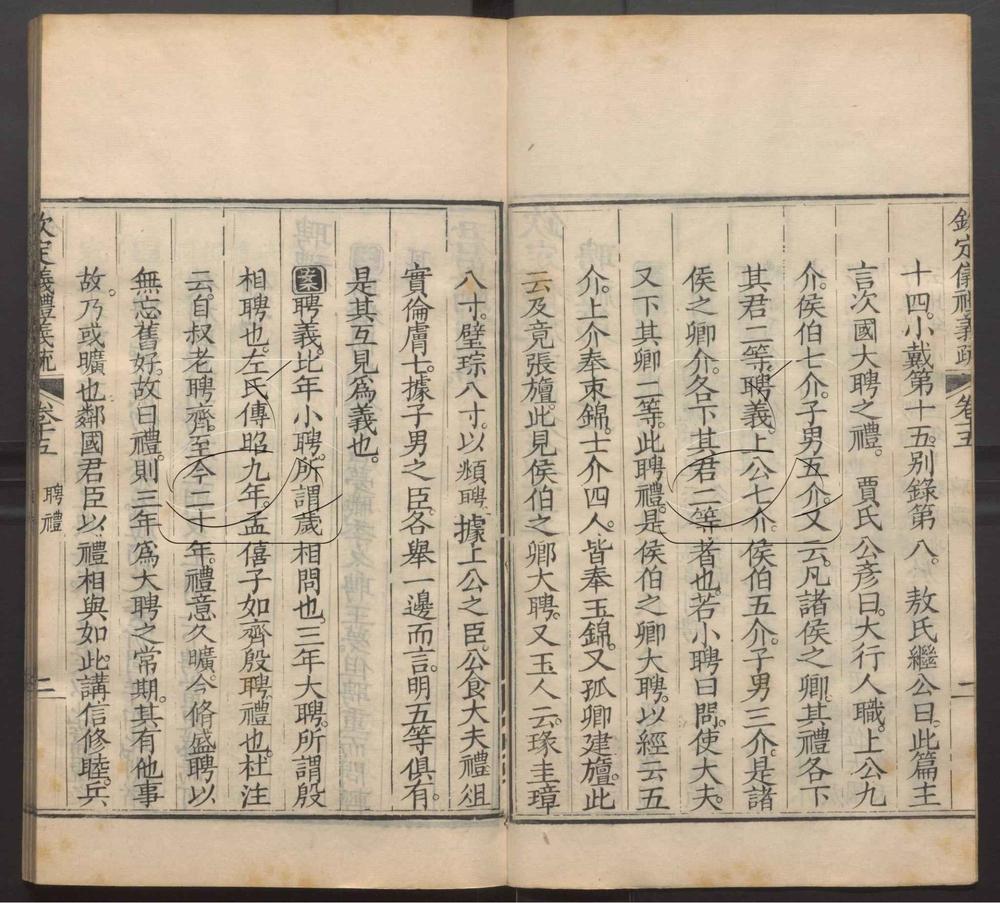 欽定儀禮義疏 卷十五 二
十四。小戴第十五。別錄第八。 敖氏繼公曰。此篇主
言次國大聘之禮。 賈氏公彥曰。大行人職。上公九
介。侯伯七介。子男五介。又云。凡諸侯之卿。其禮各下
其君二等。聘義。上公七介。侯伯五介。子男三介。是諸
侯之卿介。各下其君二等者也。若小聘曰問。使大夫。
又下其卿二等。此聘禮。是侯伯之卿大聘。以經云五
介。上介奉束錦。士介四人。皆奉玉錦。又孤卿建旜。此
云及竟張旜。此見侯伯之卿大聘。又玉人云。瑑圭璋
八寸。璧琮八寸。以頫聘。據上公之臣。公食大夫禮俎
實倫膚七。據子男之臣。各舉一邊而言。明五等俱有。
是其互見爲義也。
案 聘義。比年小聘。所謂歲相問也。三年大聘。所謂殷
相聘也。左氏傳昭九年。孟僖子如齊殷聘。禮也。杜注
云。自叔老聘齊。至今二十年。禮意久曠。今脩盛聘。以
無忘舊好。故曰禮。則三年爲大聘之常期。其有他事
故。乃或曠也。鄰國君臣。以禮相與如此。講信修睦。兵
欽定儀禮義疏 卷十五 聘禮 二